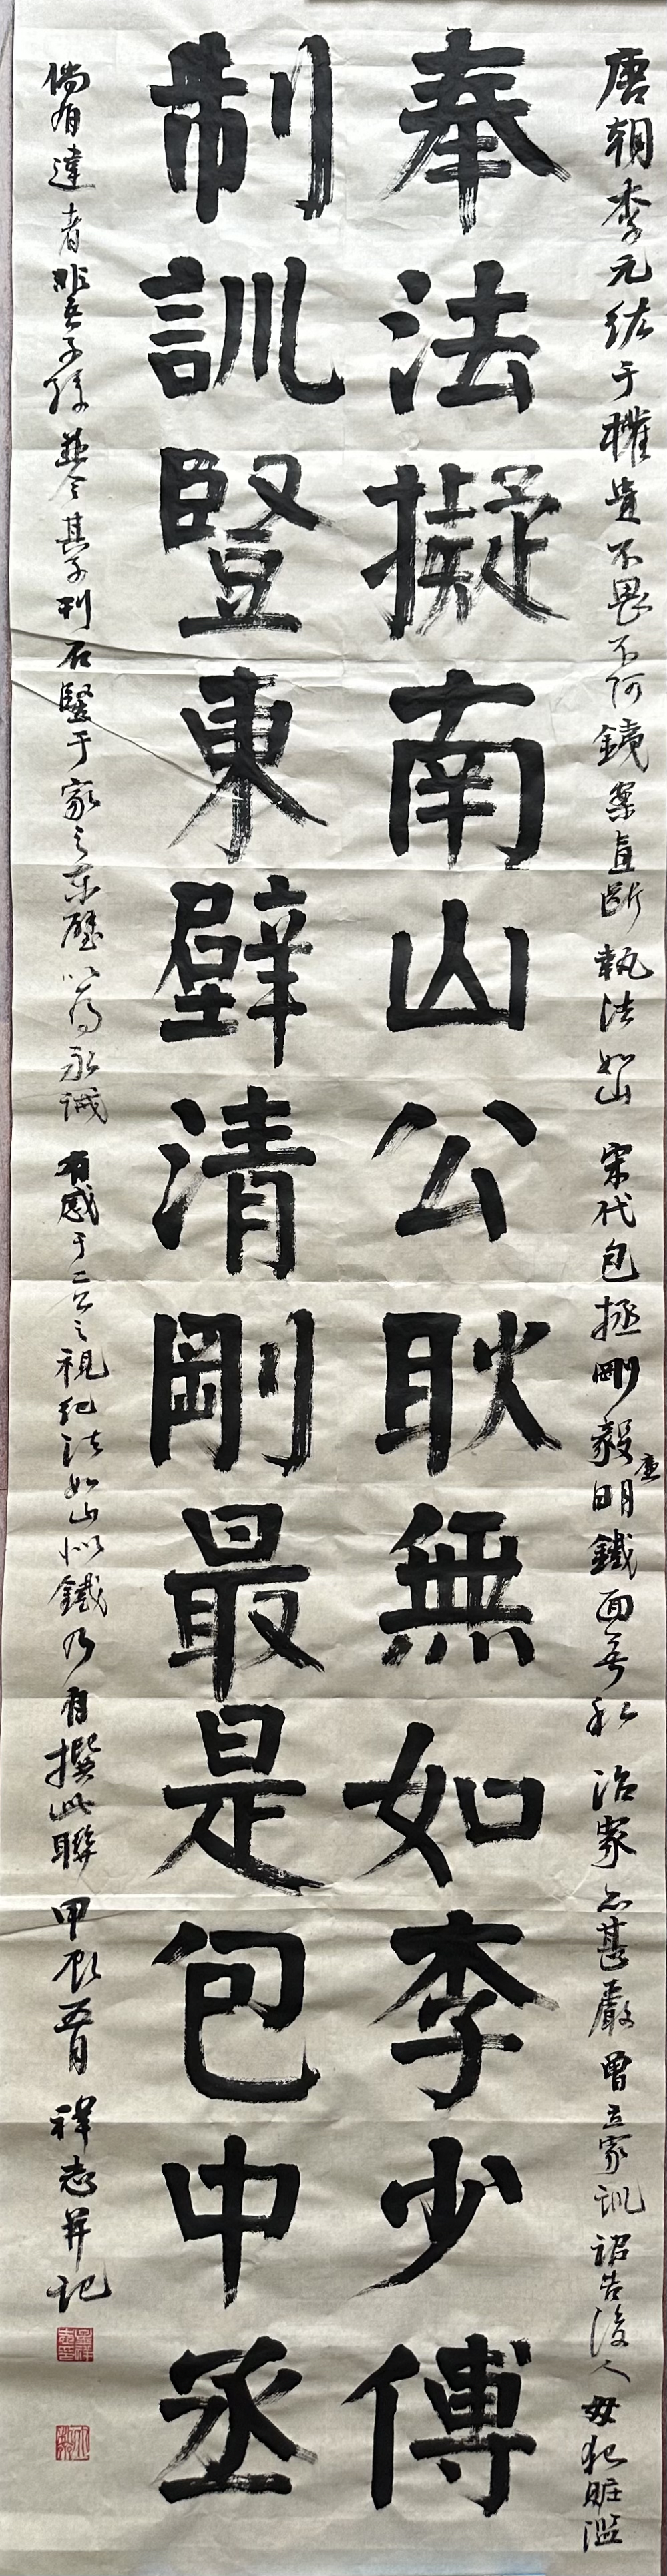 唐朝李元紘于權貴不畏不阿鐃案直斷執法如山 宋代包拯剛毅廉明鐵面無私 治家亦甚嚴曾立家訓詔告後人毋犯賍濫
奉法擬南山公耿無如李少傅
制訓豎東壁清剛最是包中丞
倘有違者非吾子孫並令其子刊石豎于家之東壁以為永誡 有感于二公之視紀法如山似鐵乃有撰此聯 甲辰五月 祥志并記